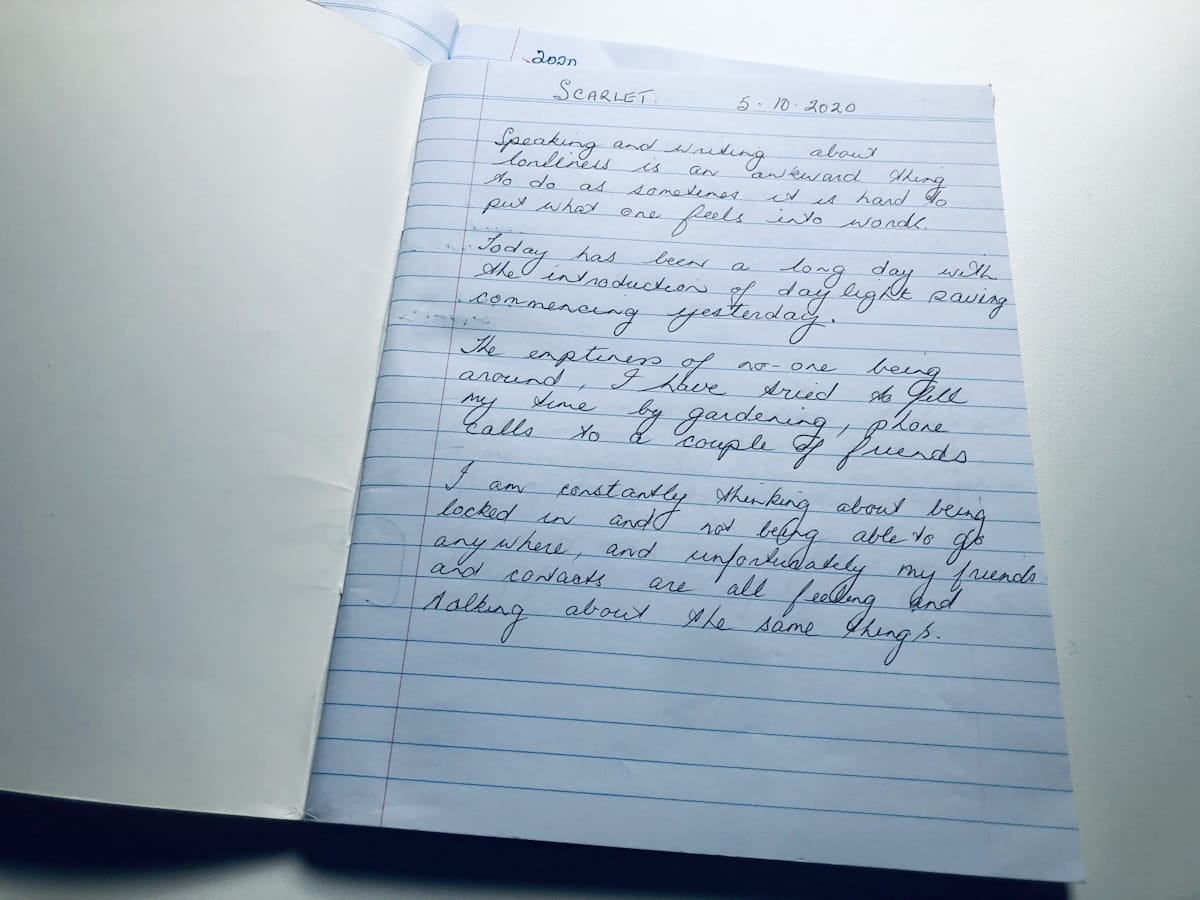 2020
SCARLET. 5.10.2020
Speaking and writing about
lonliness is an awkward thing
to do as sometimes it is hard to
put what one feels into words.
Today has been a long day with
the introduction of day light saving
commencing yesterday.
The emptiness of no-one being
around, I have tried to fill
my time by gardening, phone
calls to a couple of friends
I am constantly thinking about being
locked in and not being able to go
anywhere, and unfortunately my friends
and contacts are all feeling and
talking about the same things.